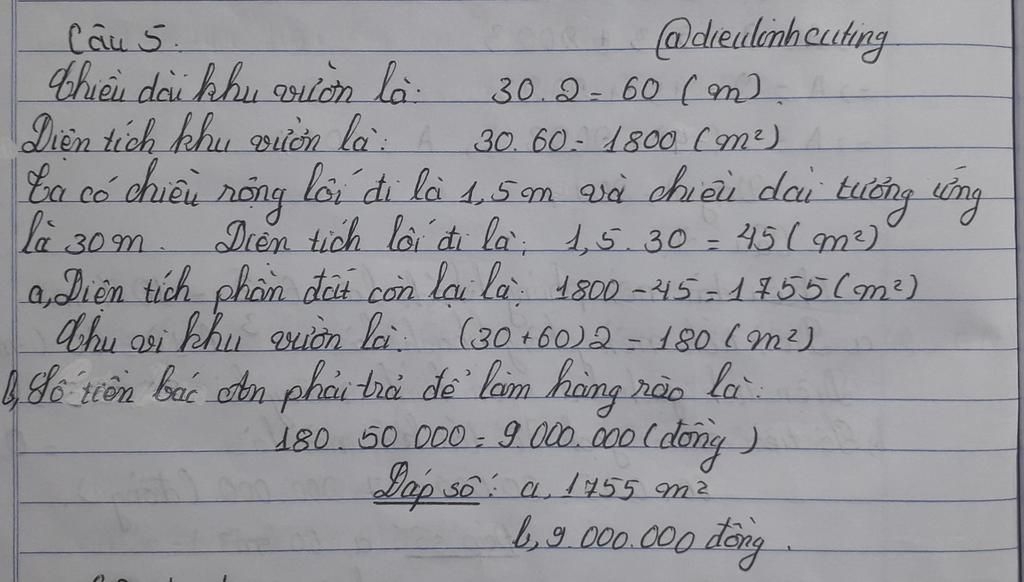 Câu 5. @dieulinhcuting
Chiều dài khu vườn là: 30.2 = 60 (m).
Diện tích khu vườn là: 30.60 = 1800 (m²)
Ta có chiều rộng lối đi là 1,5m và chiều dài tương ứng
là 30m. Diện tích lối đi là: 1,5.30 = 45 (m²)
a, Diện tích phần đất còn lại là: 1800 - 45 = 1755 (m²)
Chu vi khu vườn là: (30+60)2 = 180 (m²)
b, Số tiền bác An phải trả để làm hàng rào là:
180.50 000 = 9.000.000 (đồng)
Đáp số: a, 1755 m²
b, 9.000.000 đồng.